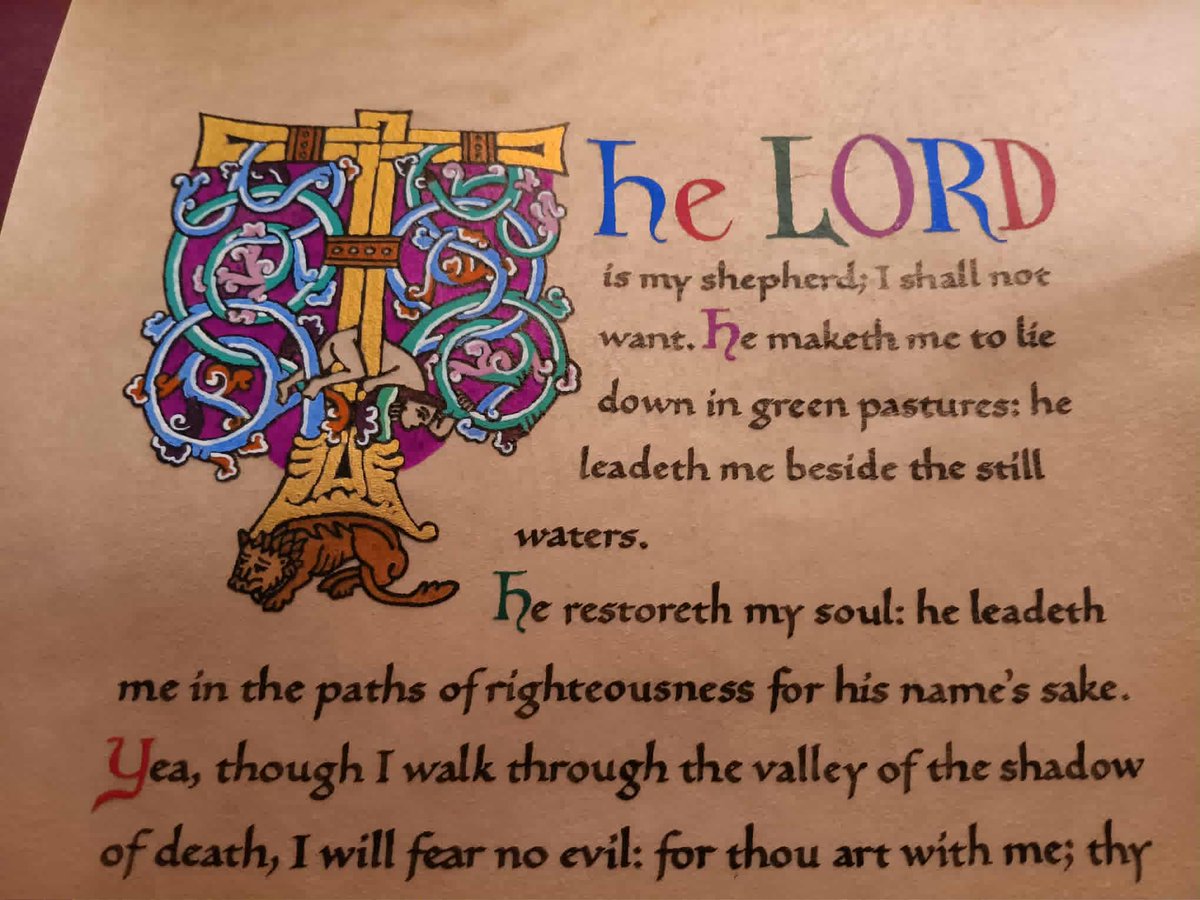 The LORD
is my shepherd; I shall not
want. He maketh me to lie
down in green pastures: he
leadeth me beside the still
waters.
He restoreth my soul: he leadeth
me in the paths of righteousness for his name's sake.
Yea, though I walk through the valley of the shadow
of death, I will fear no evil: for thou art with me; thy